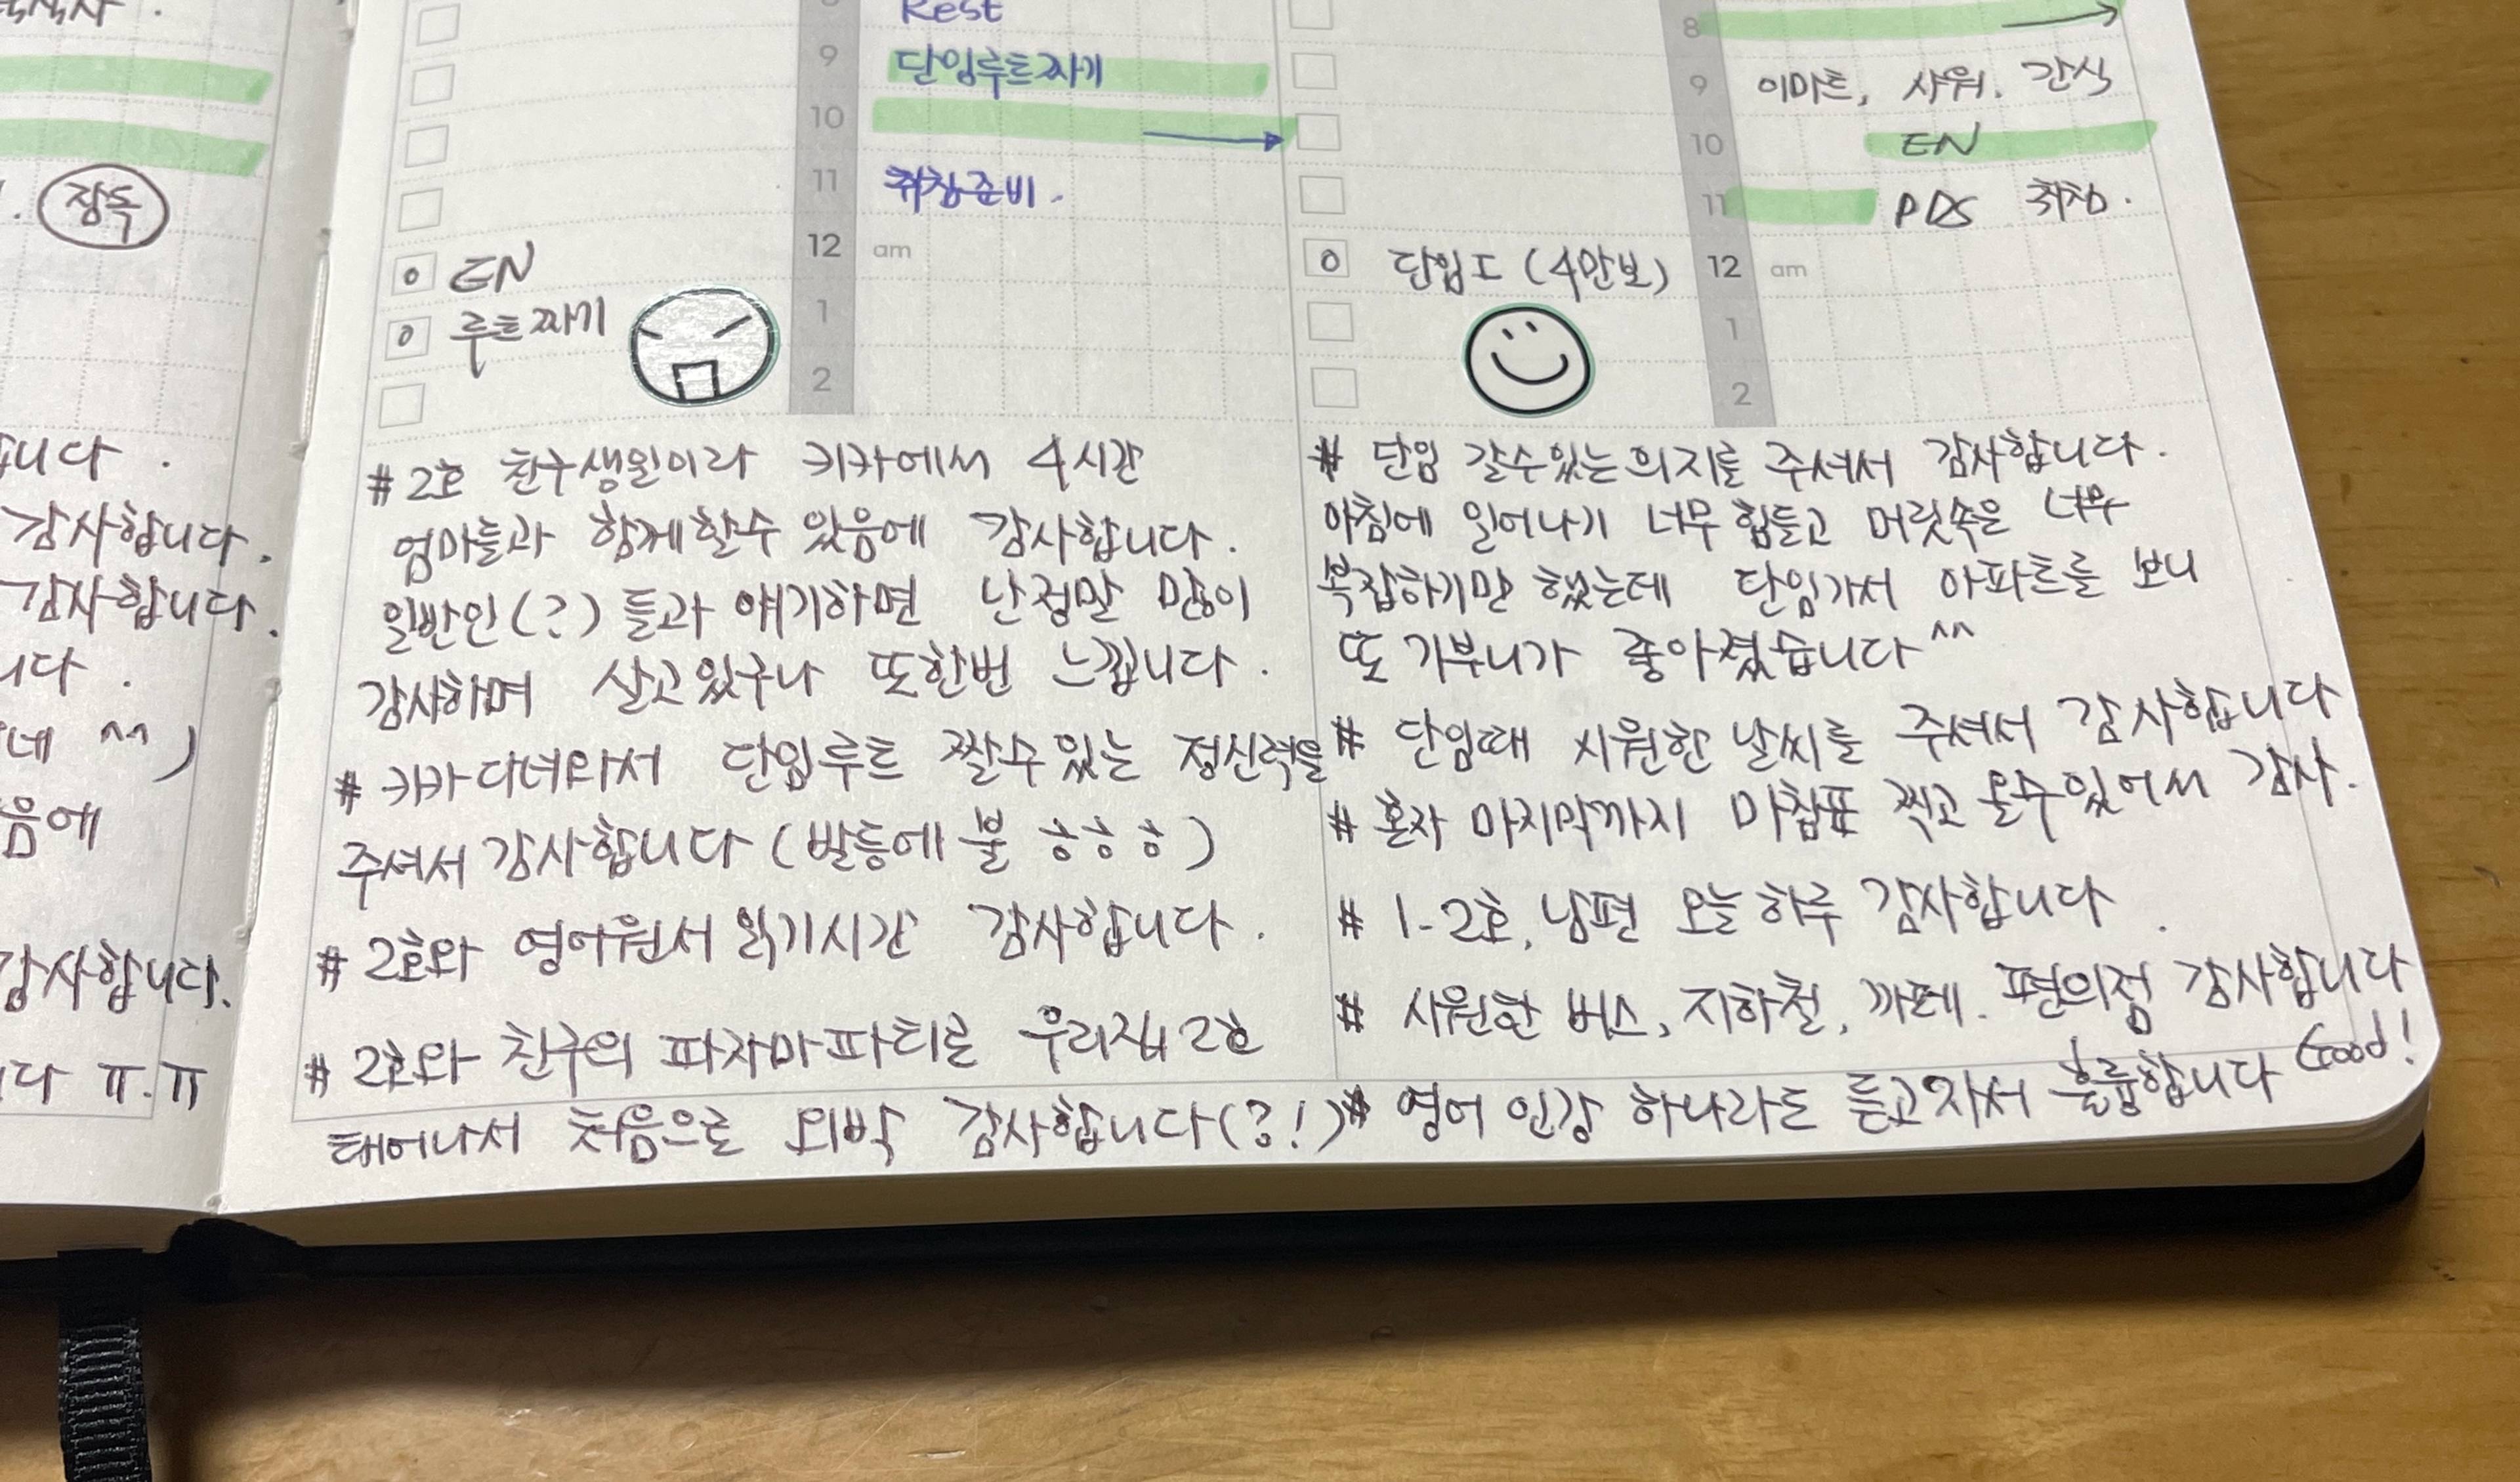 감사합니다.
감사합니다.
네 ^^)
음에
감사합니다.
다 ㅠ.ㅠ
Rest
9 단임루트짜기
10
11 취침준비.
12 am
EN
루트짜기
1
2
# 2호 친구생일이라 키카에서 4시간
엄마들과 함께할수 있음에 감사합니다.
일반인(?)들과 얘기하면 난정말 많이
감사하며 살고있구나 또한번 느낍니다.
# 키카다녀와서 단임루트 짤수있는 정신력을
주셔서 감사합니다 (발등에 불 ㅎㅎㅎ)
# 2호와 영어원서 읽기시간 감사합니다.
# 2호와 친구의 파자마파티로 우리집 2호
태어나서 처음으로 외박 감사합니다(?!)
8
9 이마트, 샤워. 간식
10 EN
11 PDS 취침.
단임 (4만보) 12 am
1
2
# 단임 갈수있는의지를 주셔서 감사합니다.
아침에 일어나기 너무 힘들고 머릿속은 너무
복잡하기만 했는데 단임가서 아파트를 보니
또 기부니가 좋아졌습니다^^
# 단임때 시원한 날씨를 주셔서 감사합니다
# 혼자 마지막까지 마침표 찍고 올수있어서 감사.
# 1-2호, 남편 오늘하루 감사합니다.
# 시원한 버스, 지하철, 까페. 편의점 감사합니다
# 영어 인강 하나라도 듣고자서 훌륭합니다 Good!